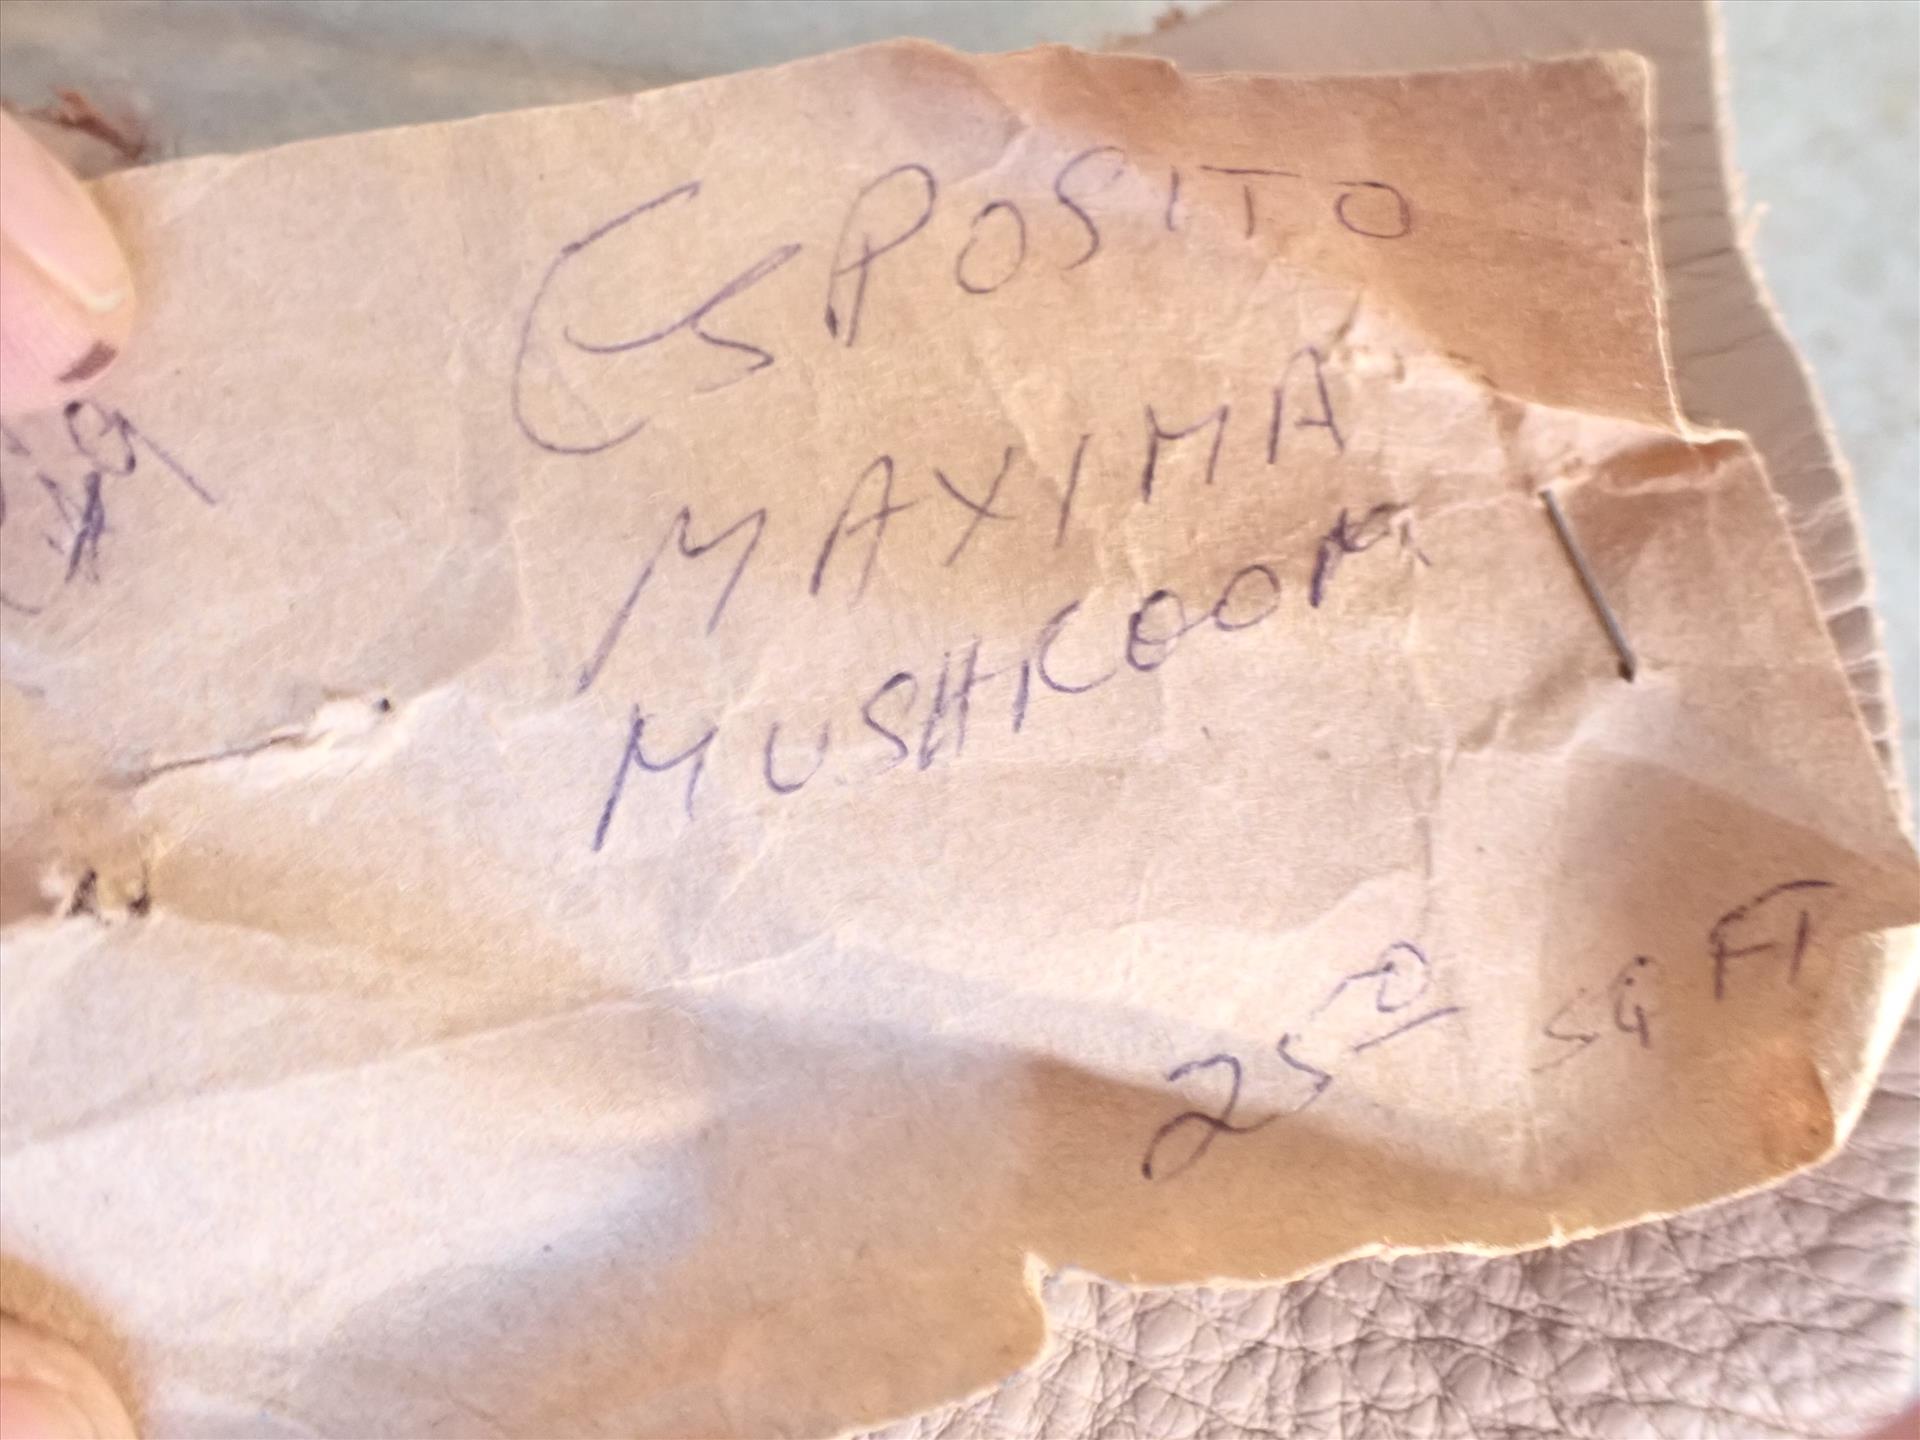 ESPOSITO
MAXIMA
MUSHROOM
25 0 SQ FT